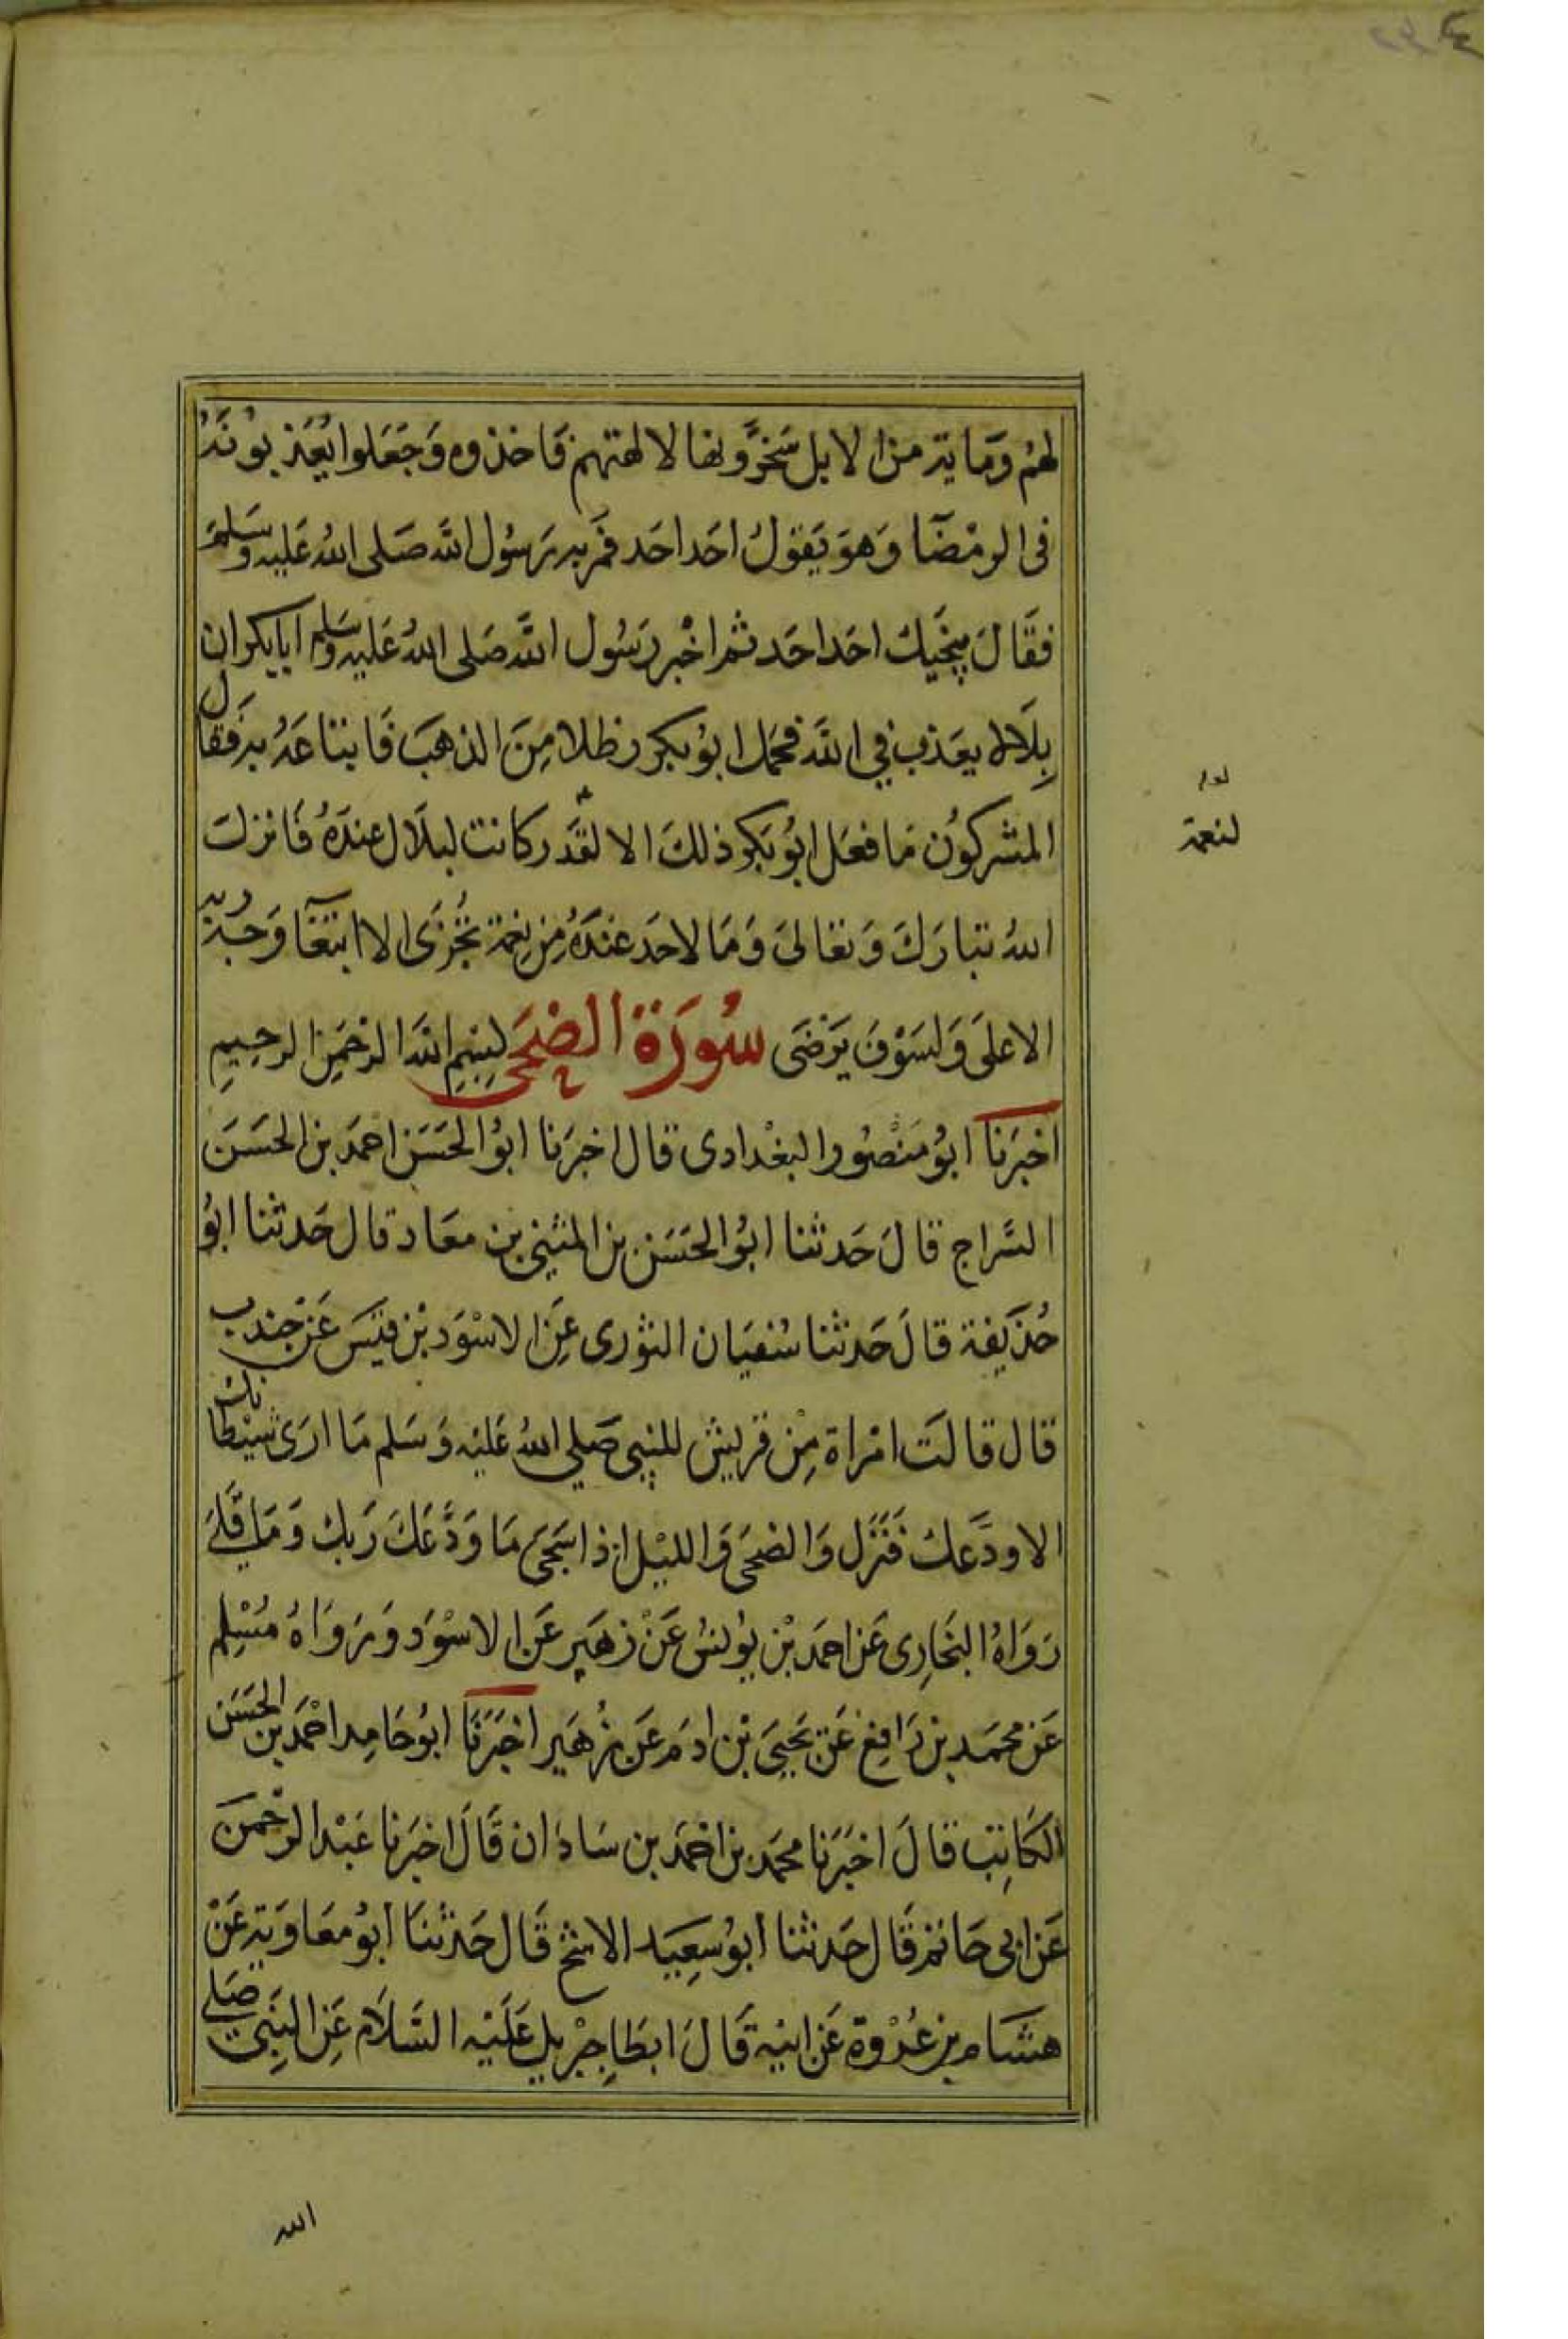 لهم ومايۃ من الابل سَخرَّونها لالهتهم فاخذوه وَجَعَلوا يُعَذبوُنَهُ
فى الرمْضَآ وَهوَ يَقولُ احَد احَد فمَر بہ رَسُول اللہ صَلى اللهُ عَليہ وسَلم
فقَالَ ينجيك احَد احَد ثم اخْبر رَسُول اللہ صَلى اللهُ عَليہ وسَلم ابابكر ان
بلَالا يعَذب في اللہ فحمَل ابوُ بكر رظلا مِنَ الذهبَ فَابتاعَهُ بہ فَقال
المشركوُن مَا فعَل ابوُ بَكر ذلكَ الا لقَد كانت لبلَال عندَهُ فَانزلت
اللهُ تبارَكَ وَتعَالىَ وَمَا لاحَد عندَهُ مِن نِعمۃ تجُزَى الا ابتغَآ وَجہ ربہ
الاعلَى وَلسَوْفَ يَرْضَى سُورَة الضحَى بِسْمِ اللہ الرحْمَنِ الرحِيمِ
اخبَرنَا ابوُ مَنصُور البغْدادى قال اخبَرنا ابوُ الحَسَن احمَد بن الحَسَن
السَّراج قالَ حَدثنا ابوُ الحَسَن بن المثنى بن معَاد قال حَدثنا ابوُ
حُذيفۃ قالَ حَدثنا سُفيَان الثوْرى عَن الاسْوَد بْن قيَس عَن جندب
قال قالَت امْراة مِنْ قريش للنبِي صَلي اللهُ عَليْہ وَسَلم مَا ارَى شَيْطانك
الا ودَّعك فَنَزل وَالضحَى وَالليْل اذا سَجَى مَا وَدَّعَكَ رَبك وَمَا قَلَى
رَوَاهُ البخَارِى عَن احمَد بْن يوُنسُ عَنْ زهَير عَن الاسْوَد وَرَوَاهُ مُسْلِم
عَن محمَد بن رَافِع عَن يَحيىَ بْن ادَم عَن زُهَير اخبَرَنَا ابوُ حَامِد احْمَد بن الحَسَن
الكَاتِب قالَ اخبَرَنا محمَد بن احْمَد بن سَادَان قَالَ اخبَرنا عَبْد الرحْمَن
عَن ابى حَاتم قَال حَدثنا ابوُ سَعِيد الاشج قَال حَدثنَا ابوُ معَاويۃ عَنْ
هشَام بن عُرْوة عَن ابيْہ قَالَ ابطَا جِبْريل عَلَيْہ السَلَام عَن النبِيّ صَلى
لنعمۃ
الله